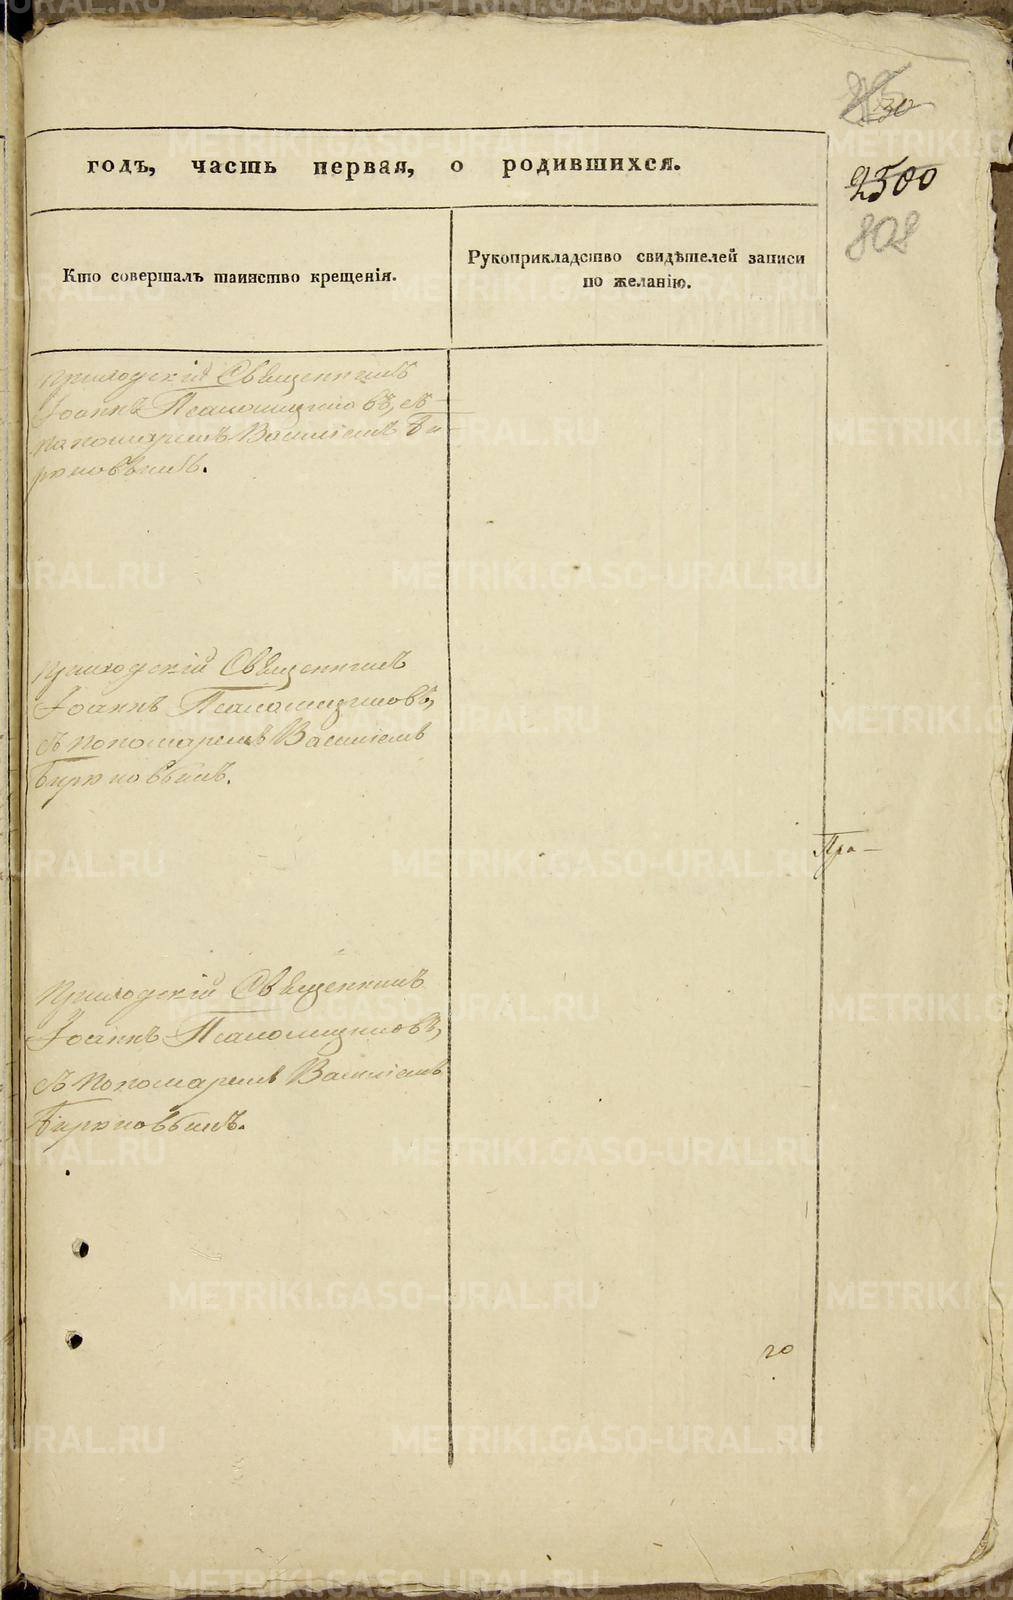 30
2500
808
годъ, часть первая, о родившихся.
Кто совершалъ таинство крещенія.
Рукоприкладство свидѣтелей записи
по желанію.
Приходскій Священникъ
Іоаннъ Псаломщиковъ, съ
пономаремъ Василіемъ Би
рюковымъ.
Приходскій Священникъ
Іоаннъ Псаломщиковъ,
съ пономаремъ Василіемъ
Бирюковымъ.
Пра—
Приходскій Священникъ
Іоаннъ Псаломщиковъ,
съ пономаремъ Василіемъ
Бирюковымъ.
го
METRIKI.GASO-URAL.RU